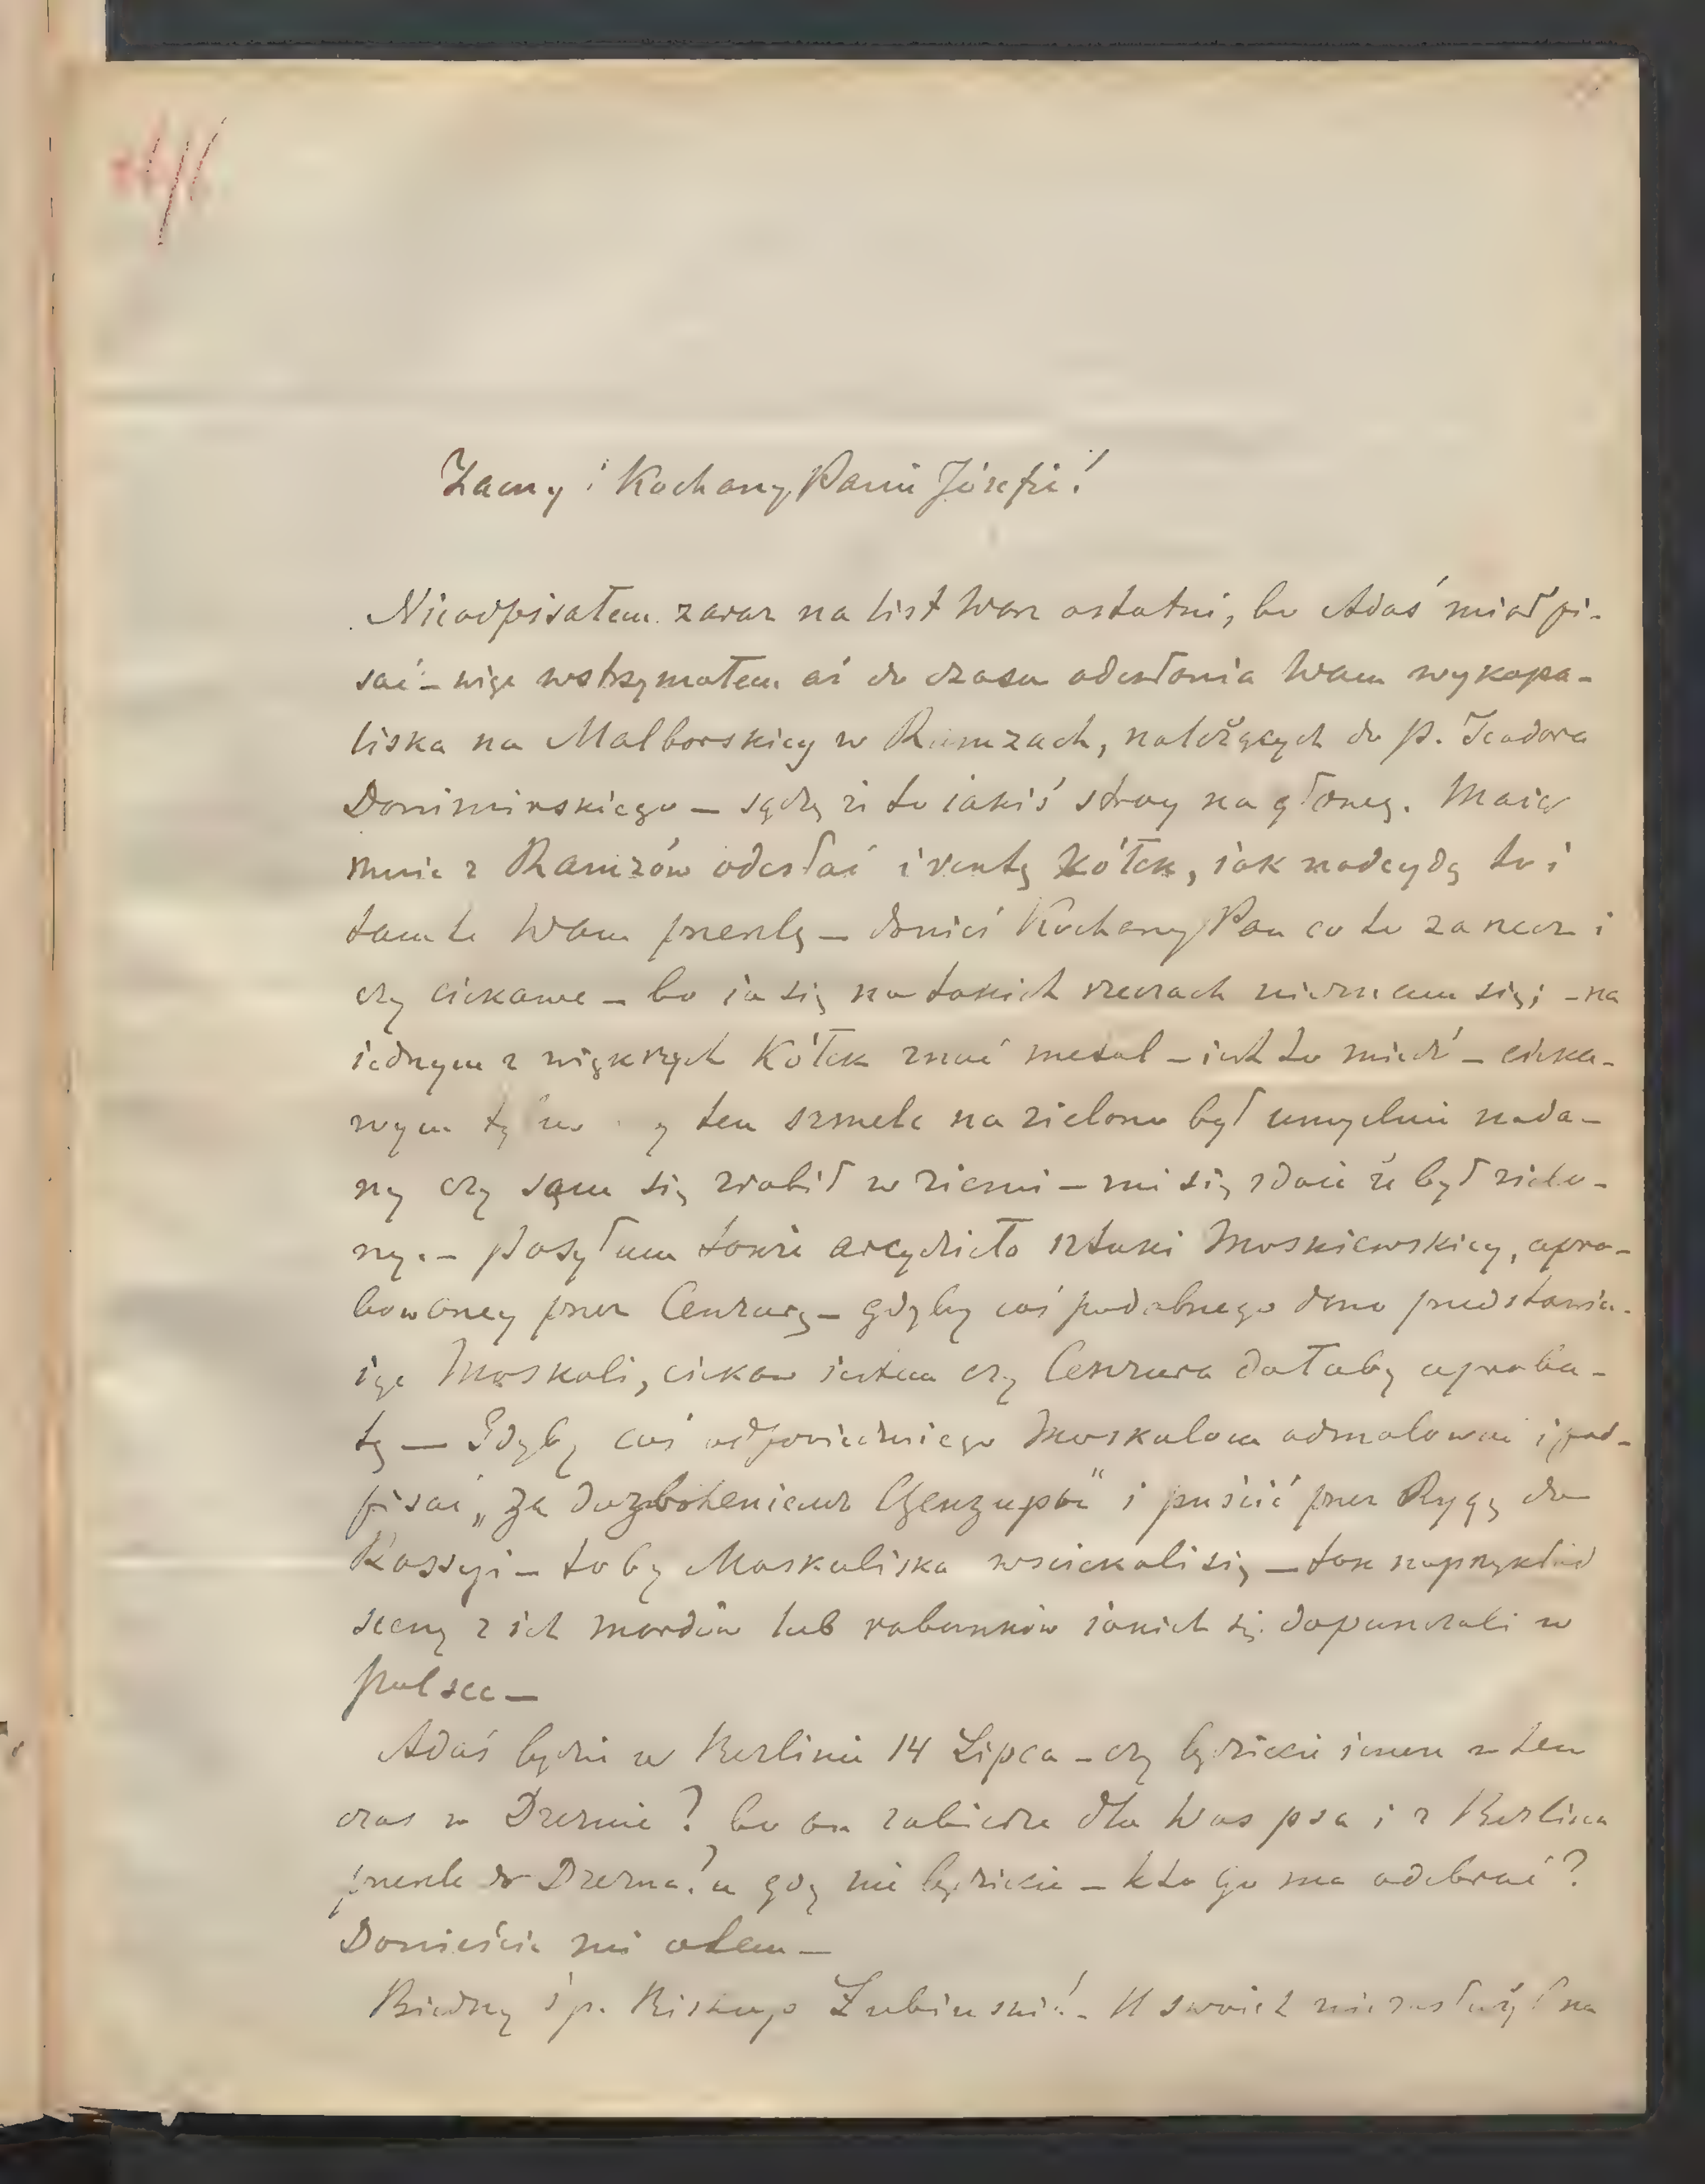 Zacny i Kochany Panie Józefie!
Nieodpisałem zaraz na list Wasz ostatni, bo Adaś miał pi-
sać – więc wstrzymałem aż do czasu odesłania Wam wykopa-
liska na Malborskiey w Ramzach, należących do p. Teodora
Donimirskiego – sądzę że to iakiś stroy na głowę. Maią
mnie z Ramzów odesłać i resztę Kółek, iak nadeydą to i
tamte Wam prześlę – donieś Kochany Pan co to za rzecz i
czy ciekawe – bo ia się na takich rzeczach nieznam się; – na
iednym z większych Kółek znać metal – iest to miedź – cieka-
wym ten szmelc na zielono był umyślnie nada-
ny czy sam się zrobił w ziemi – mi się zdaie że był zielo-
ny. – Posyłam także arcydzieło sztuki Moskiewskiey, apro-
bowaney przez Cenzurę – gdyby coś podobnego dano przedstawia-
iące Moskali, ciekaw iestem czy Cenzura dałaby aproba-
tę — Gdyby coś odpowiedniego Moskalom odmalować i pod-
pisać „za dozboleniem Czenzury" i puścić przez Rygę do
Rossyi – to by Moskaliska wściekali się – tak naprzykład
sceny z ich mordów lub rabunków iakich się dopuszczali w
Polsce –
Adaś będzie w Berlinie 14 Lipca – czy będziecie ieszcze w ten
czas w Dreznie? bo on zabierze dla Was psa i z Berlina
prześle do Drezna? a gdy nie będziecie – kto go ma odebrać?
Donieście mi otem –
Biedny ś p. Biskup Łubieński! – U swoich niezasłużył na